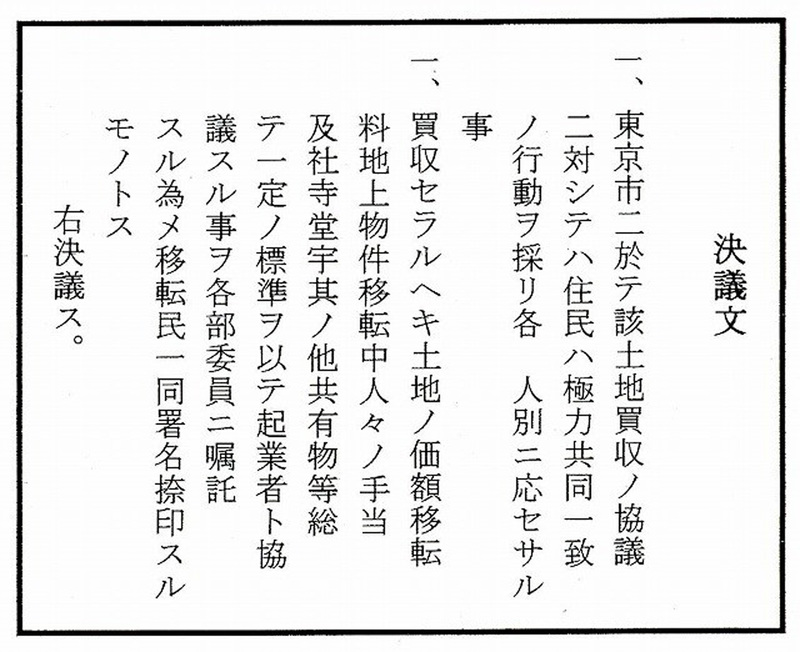 決議文
一、東京市二於テ該土地買収ノ協議
二対シテハ住民ハ極力共同一致
ノ行動ヲ採リ各　人別ニ応セサル
事
一、買収セラルヘキ土地ノ価額移転
料地上物件移転中人々ノ手当
及社寺堂宇其ノ他共有物等総
テ一定ノ標準ヲ以テ起業者ト協
議スル事ヲ各部委員ニ嘱託
スル為メ移転民一同署名捺印スル
モノトス
右決議ス。